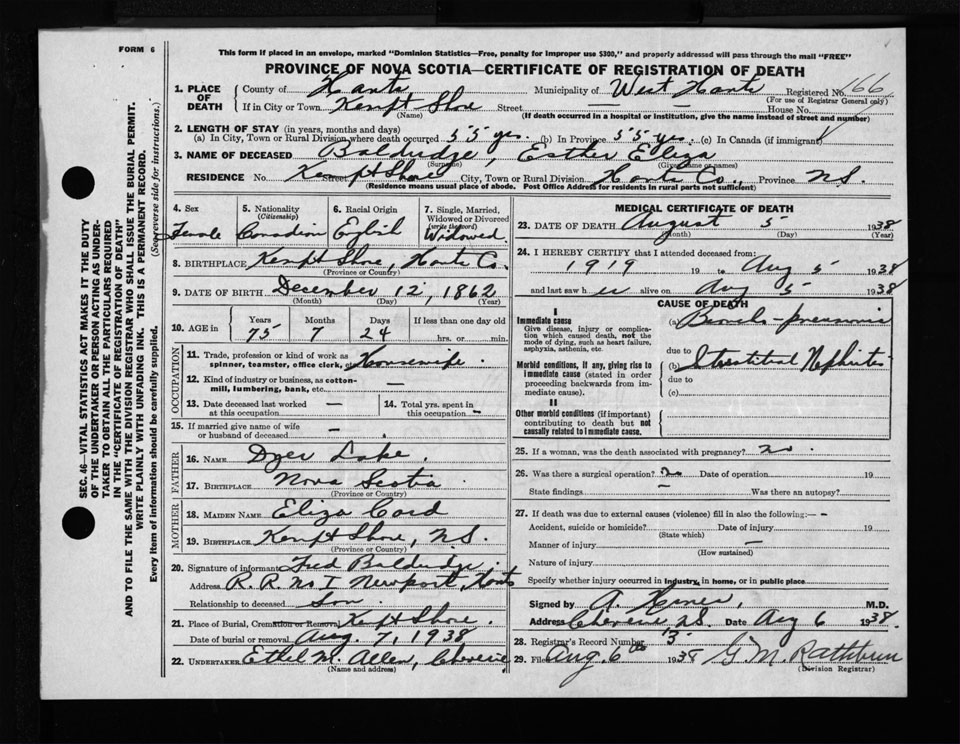 FORM 6
This form if placed in an envelope, marked "Dominion Statistics—Free, penalty for improper use $300," and properly addressed will pass through the mail "FREE"
PROVINCE OF NOVA SCOTIA—CERTIFICATE OF REGISTRATION OF DEATH
1. PLACE OF DEATH County of Hants Municipality of West Hants Registered No. 66
(For use of Registrar General only)
If in City or Town Kempt Shore Street — House No. —
(Name) (If death occurred in a hospital or institution, give the name instead of street and number)
2. LENGTH OF STAY (in years, months and days)
(a) In City, Town or Rural Division where death occurred 55 yrs. (b) In Province 55 yrs. (c) In Canada (if immigrant)
3. NAME OF DECEASED Baldridge, Esther Eliza
(Surname) (Given name or names)
RESIDENCE No. Street Kempt Shore City, Town or Rural Division Hants Co., Province N.S.
(Residence means usual place of abode. Post Office Address for residents in rural parts not sufficient)
SEC. 46—VITAL STATISTICS ACT MAKES IT THE DUTY
OF THE UNDERTAKER OR PERSON ACTING AS UNDER-
TAKER TO OBTAIN ALL THE PARTICULARS REQUIRED
IN THE "CERTIFICATE OF REGISTRATION OF DEATH"
AND TO FILE THE SAME WITH THE DIVISION REGISTRAR WHO SHALL ISSUE THE BURIAL PERMIT.
WRITE PLAINLY WITH UNFADING INK. THIS IS A PERMANENT RECORD.
Every item of information should be carefully supplied. (See reverse side for instructions.)
4. Sex
Female
5. Nationality
(Citizenship)
Canadian
6. Racial Origin
English
7. Single, Married,
Widowed or Divorced
(write the word)
Widowed.
8. BIRTHPLACE Kempt Shore, Hants Co.
(Province or Country)
9. DATE OF BIRTH December 12, 1862
(Month) (Day) (Year)
10. AGE in Years Months Days If less than one day old
75 7 24 hrs. or min.
OCCUPATION
11. Trade, profession or kind of work as
spinner, teamster, office clerk, etc. Housewife.
12. Kind of industry or business, as cotton-
mill, lumbering, bank, etc. —
13. Date deceased last worked
at this occupation —
14. Total yrs. spent in
this occupation —
15. If married give name of wife
or husband of deceased —
FATHER
16. NAME Dyer Lake.
17. BIRTHPLACE Nova Scotia
(Province or Country)
MOTHER
18. MAIDEN NAME Eliza Card
19. BIRTHPLACE Kempt Shore, N.S.
(Province or Country)
20. Signature of informant Fred Baldridge.
Address R. R. No 1 Newport, Hants
Relationship to deceased Son.
21. Place of Burial, Cremation or Removal Kempt Shore.
Date of burial or removal Aug. 7, 1938
22. UNDERTAKER Ethel M. Allen, Cheverie
(Name and address)
MEDICAL CERTIFICATE OF DEATH
23. DATE OF DEATH August 5 1938
(Month) (Day) (Year)
24. I HEREBY CERTIFY that I attended deceased from:
1919 19 to Aug 5 1938
and last saw her alive on Aug 5 1938
CAUSE OF DEATH
I
Immediate cause
Give disease, injury or complica-
tion which caused death, not the
mode of dying, such as heart failure,
asphyxia, asthenia, etc.
(a) Broncho-pneumonia
due to
Morbid conditions, if any, giving rise to
immediate cause (stated in order
proceeding backwards from im-
mediate cause).
(b) Interstitial Nephritis
due to
(c)
II
Other morbid conditions (if important)
contributing to death but not
causally related to immediate cause.
25. If a woman, was the death associated with pregnancy? No.
26. Was there a surgical operation? No Date of operation 19
State findings — Was there an autopsy?
27. If death was due to external causes (violence) fill in also the following:— —
Accident, suicide or homicide? Date of injury 19
(State which)
Manner of injury —
(How sustained)
Nature of injury
Specify whether injury occurred in industry, in home, or in public place
Signed by A. M.D.
Address Cheverie, N.S. Date Aug 6 1938.
28. Registrar's Record Number 13
29. Filed Aug. 6th 1938 G. M. Rathburn
(Division Registrar)